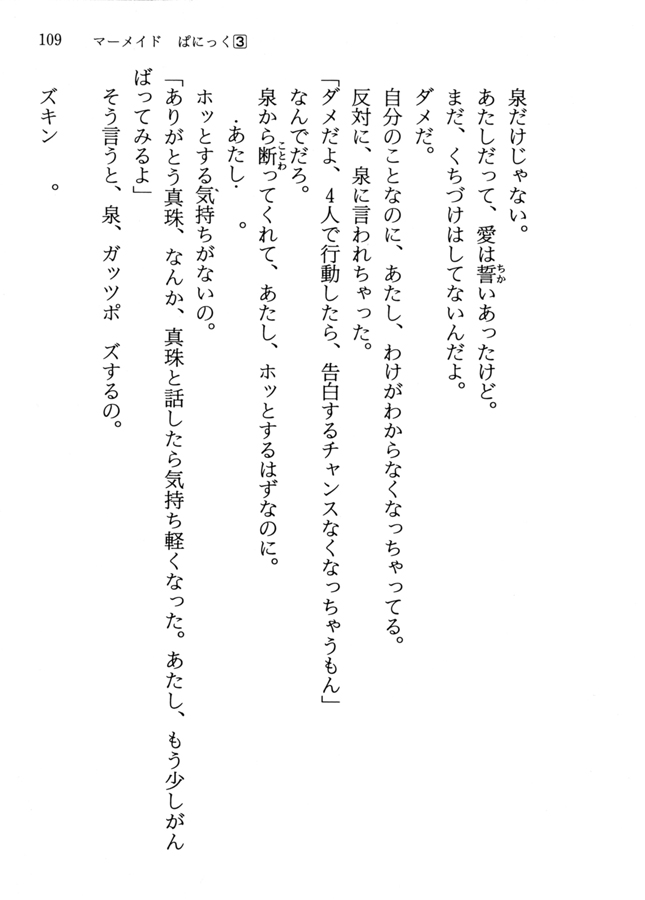 109 マーメイド ぱにっく3
泉だけじゃない。
あたしだって、愛は誓いあったけど。
まだ、くちづけはしてないんだよ。
ダメだ。
自分のことなのに、あたし、わけがわからなくなっちゃってる。
反対に、泉に言われちゃった。
「ダメだよ、4人で行動したら、告白するチャンスなくなっちゃうもん」
なんでだろ。
泉から断ってくれて、あたし、ホッとするはずなのに。
・あたし・。
ホッとする気持ちがないの。
「ありがとう真珠、なんか、真珠と話したら気持ち軽くなった。あたし、もう少しがん
ばってみるよ」
そう言うと、泉、ガッツポ ズするの。
ズキン 。